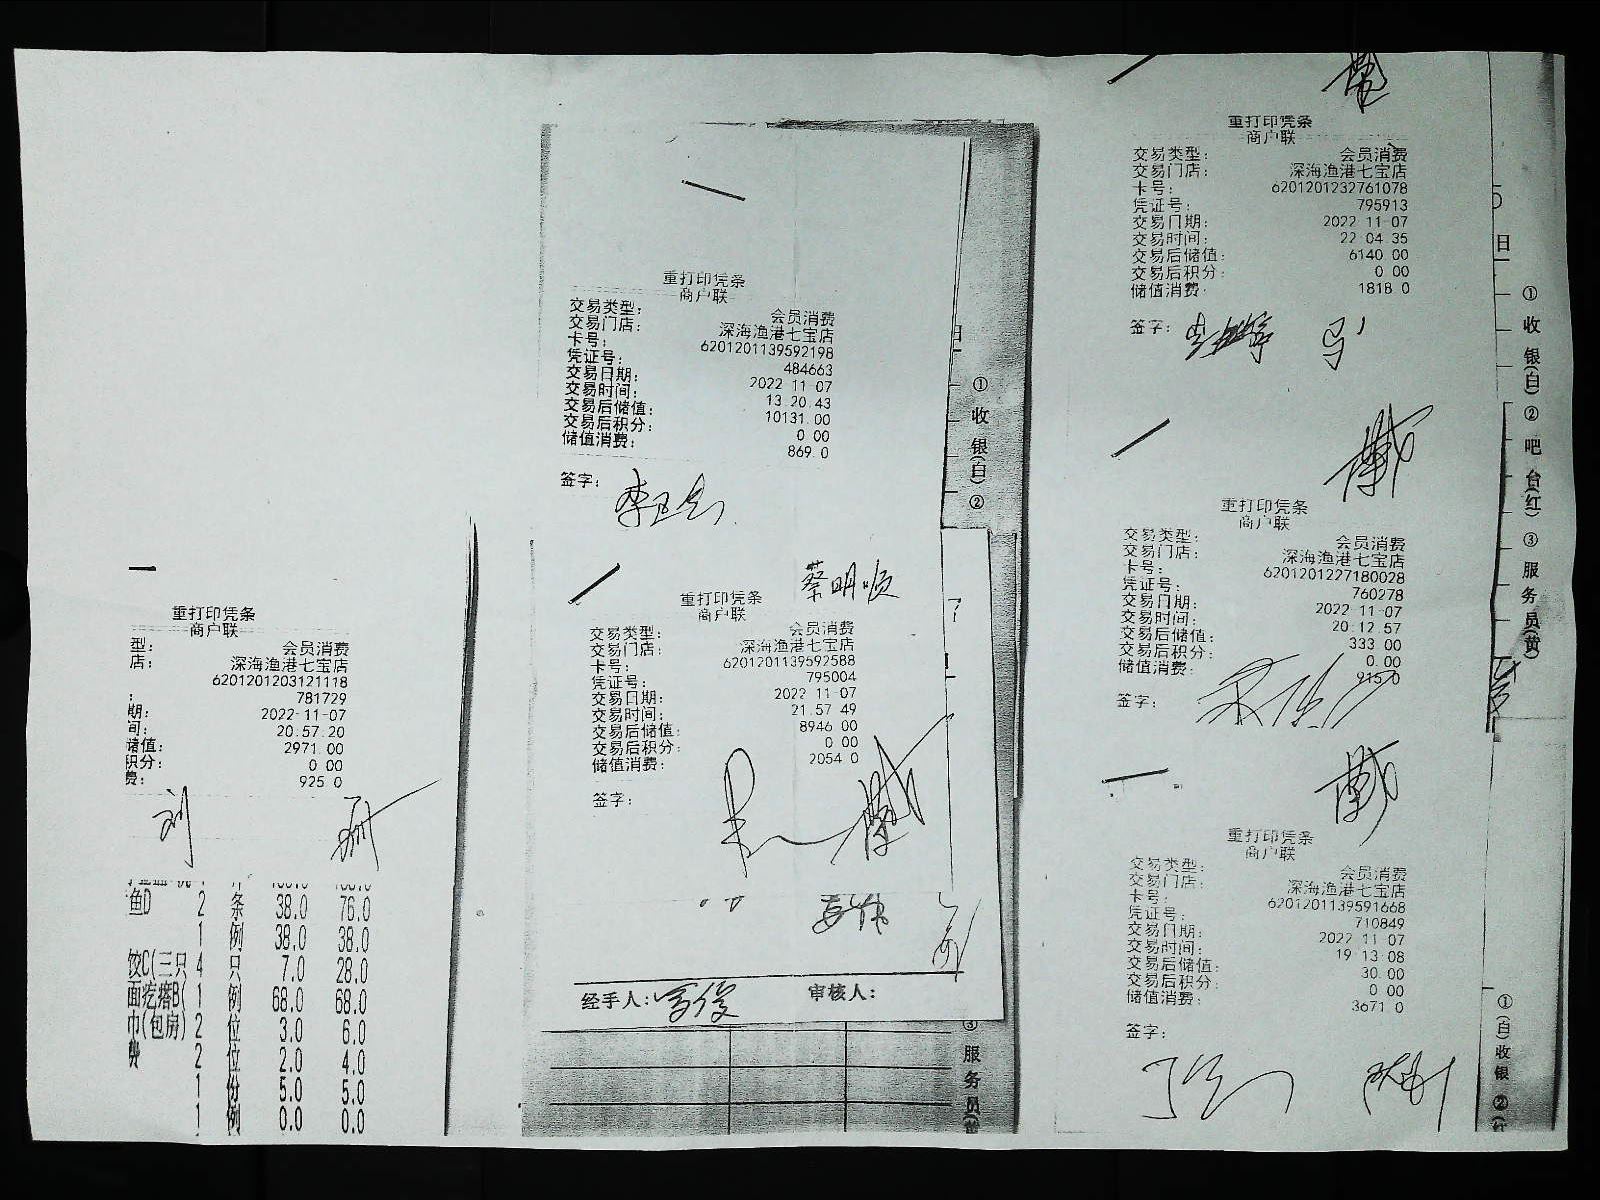 重打印凭条
商户联
型: 会员消费
店: 深海渔港七宝店
6201201203121118
: 781729
期: 2022-11-07
间: 20:57:20
储值: 2971.00
积分: 0.00
费: 925.0
刘
鱼D 2 条 38.0 76.0
1 例 38.0 38.0
饺C(三只 4 只 7.0 28.0
面疙瘩B( 1 例 68.0 68.0
巾(包房) 2 位 3.0 6.0
2 位 2.0 4.0
1 份 5.0 5.0
1 例 0.0 0.0
重打印凭条
商户联
交易类型: 会员消费
交易门店: 深海渔港七宝店
卡号: 6201201139592198
凭证号: 484663
交易日期: 2022-11-07
交易时间: 13:20:43
交易后储值: 10131.00
交易后积分: 0.00
储值消费: 869.0
签字:
①收银(白)②
蔡明顺
重打印凭条
商户联
交易类型: 会员消费
交易门店: 深海渔港七宝店
卡号: 6201201139592588
凭证号: 795004
交易日期: 2022-11-07
交易时间: 21:57:49
交易后储值: 8946.00
交易后积分: 0.00
储值消费: 2054.0
签字:
经手人: 审核人:
③服务员(黄
重打印凭条
商户联
交易类型: 会员消费
交易门店: 深海渔港七宝店
卡号: 6201201232761078
凭证号: 795913
交易日期: 2022-11-07
交易时间: 22:04:35
交易后储值: 6140.00
交易后积分: 0.00
储值消费: 1818.0
签字:
重打印凭条
商户联
交易类型: 会员消费
交易门店: 深海渔港七宝店
卡号: 6201201227180028
凭证号: 760278
交易日期: 2022-11-07
交易时间: 20:12:57
交易后储值: 333.00
交易后积分: 0.00
储值消费: 915.0
签字:
重打印凭条
商户联
交易类型: 会员消费
交易门店: 深海渔港七宝店
卡号: 6201201139591668
凭证号: 710849
交易日期: 2022-11-07
交易时间: 19:13:08
交易后储值: 30.00
交易后积分: 0.00
储值消费: 3671.0
签字:
①收银(白)②吧台(红)③服务员(黄)
①(白)收银②(红